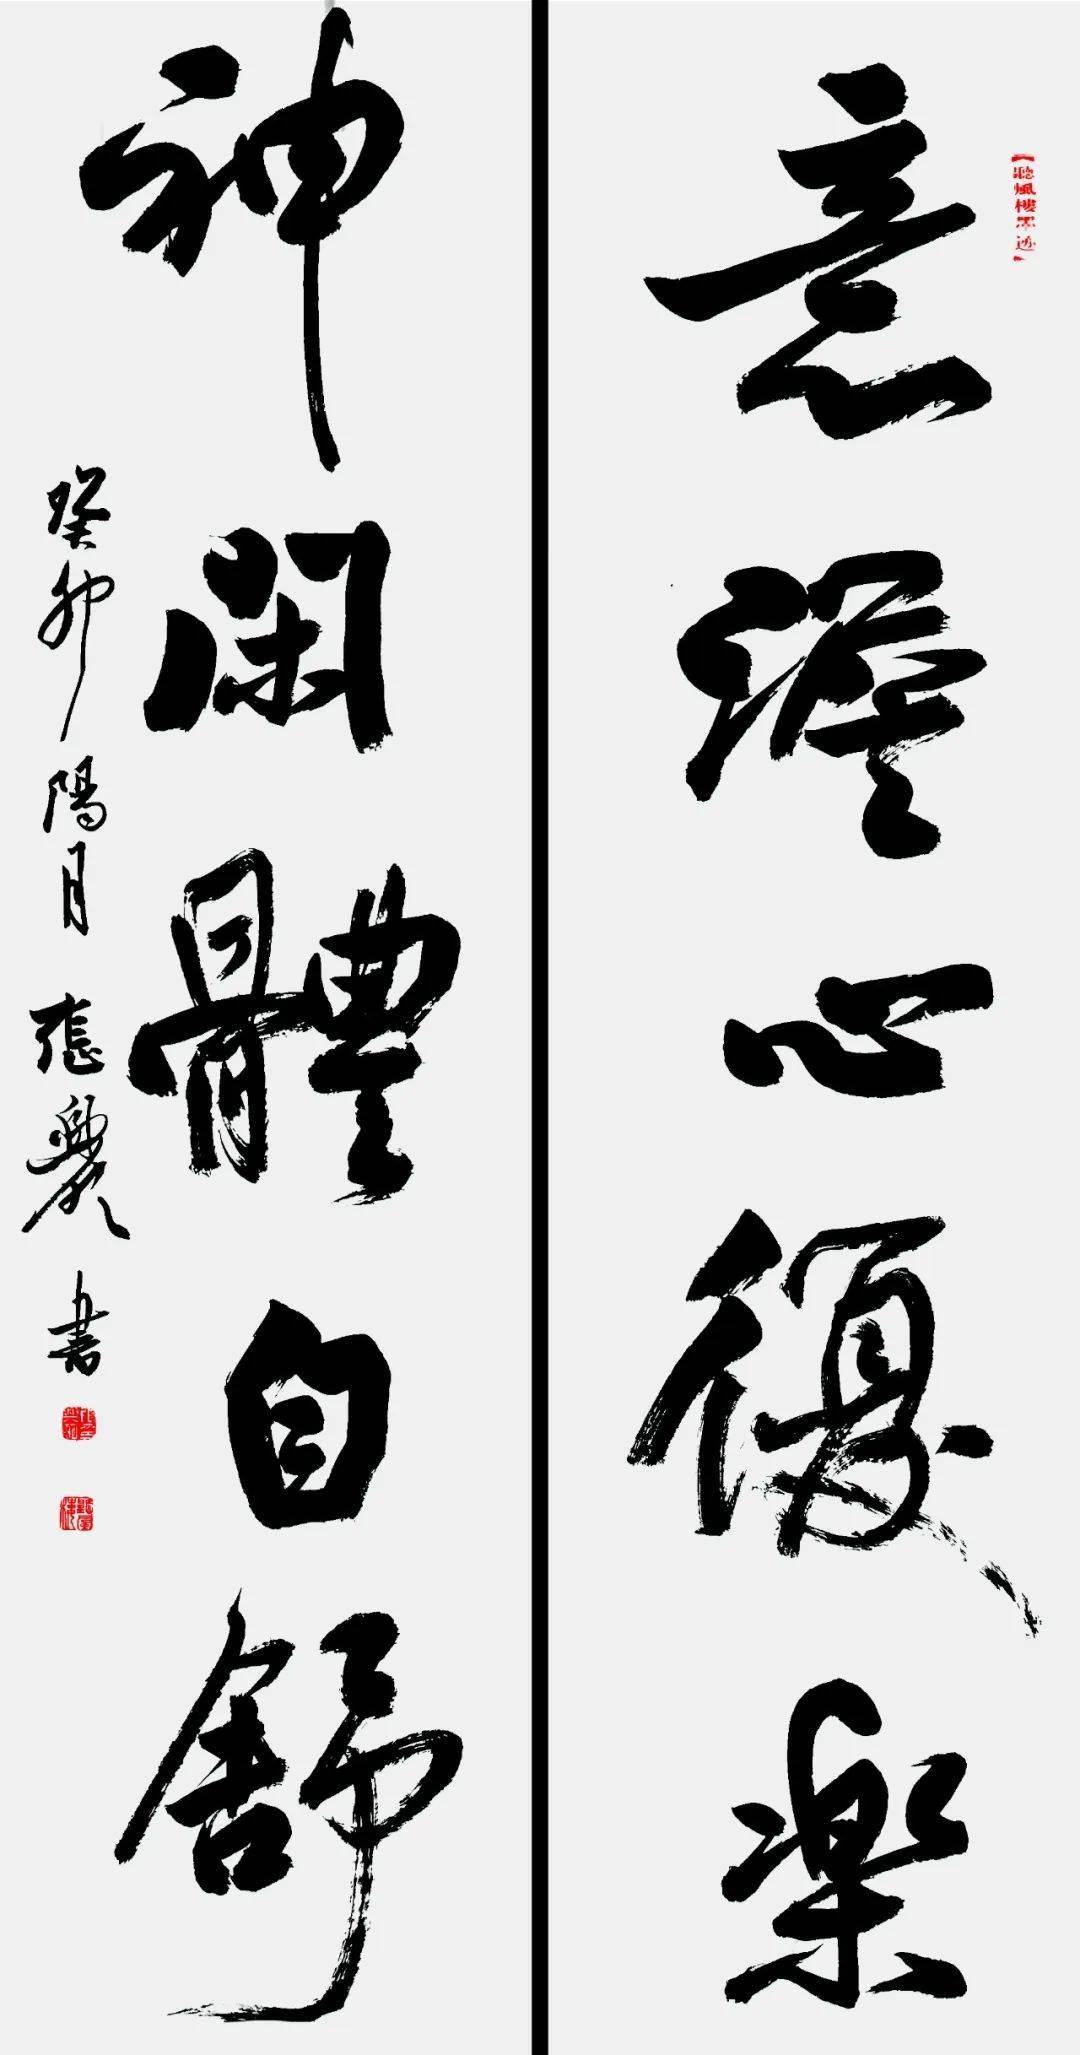 【聽風樓墨迹】
意心樂
神閑體自舒
癸卯陽月張書